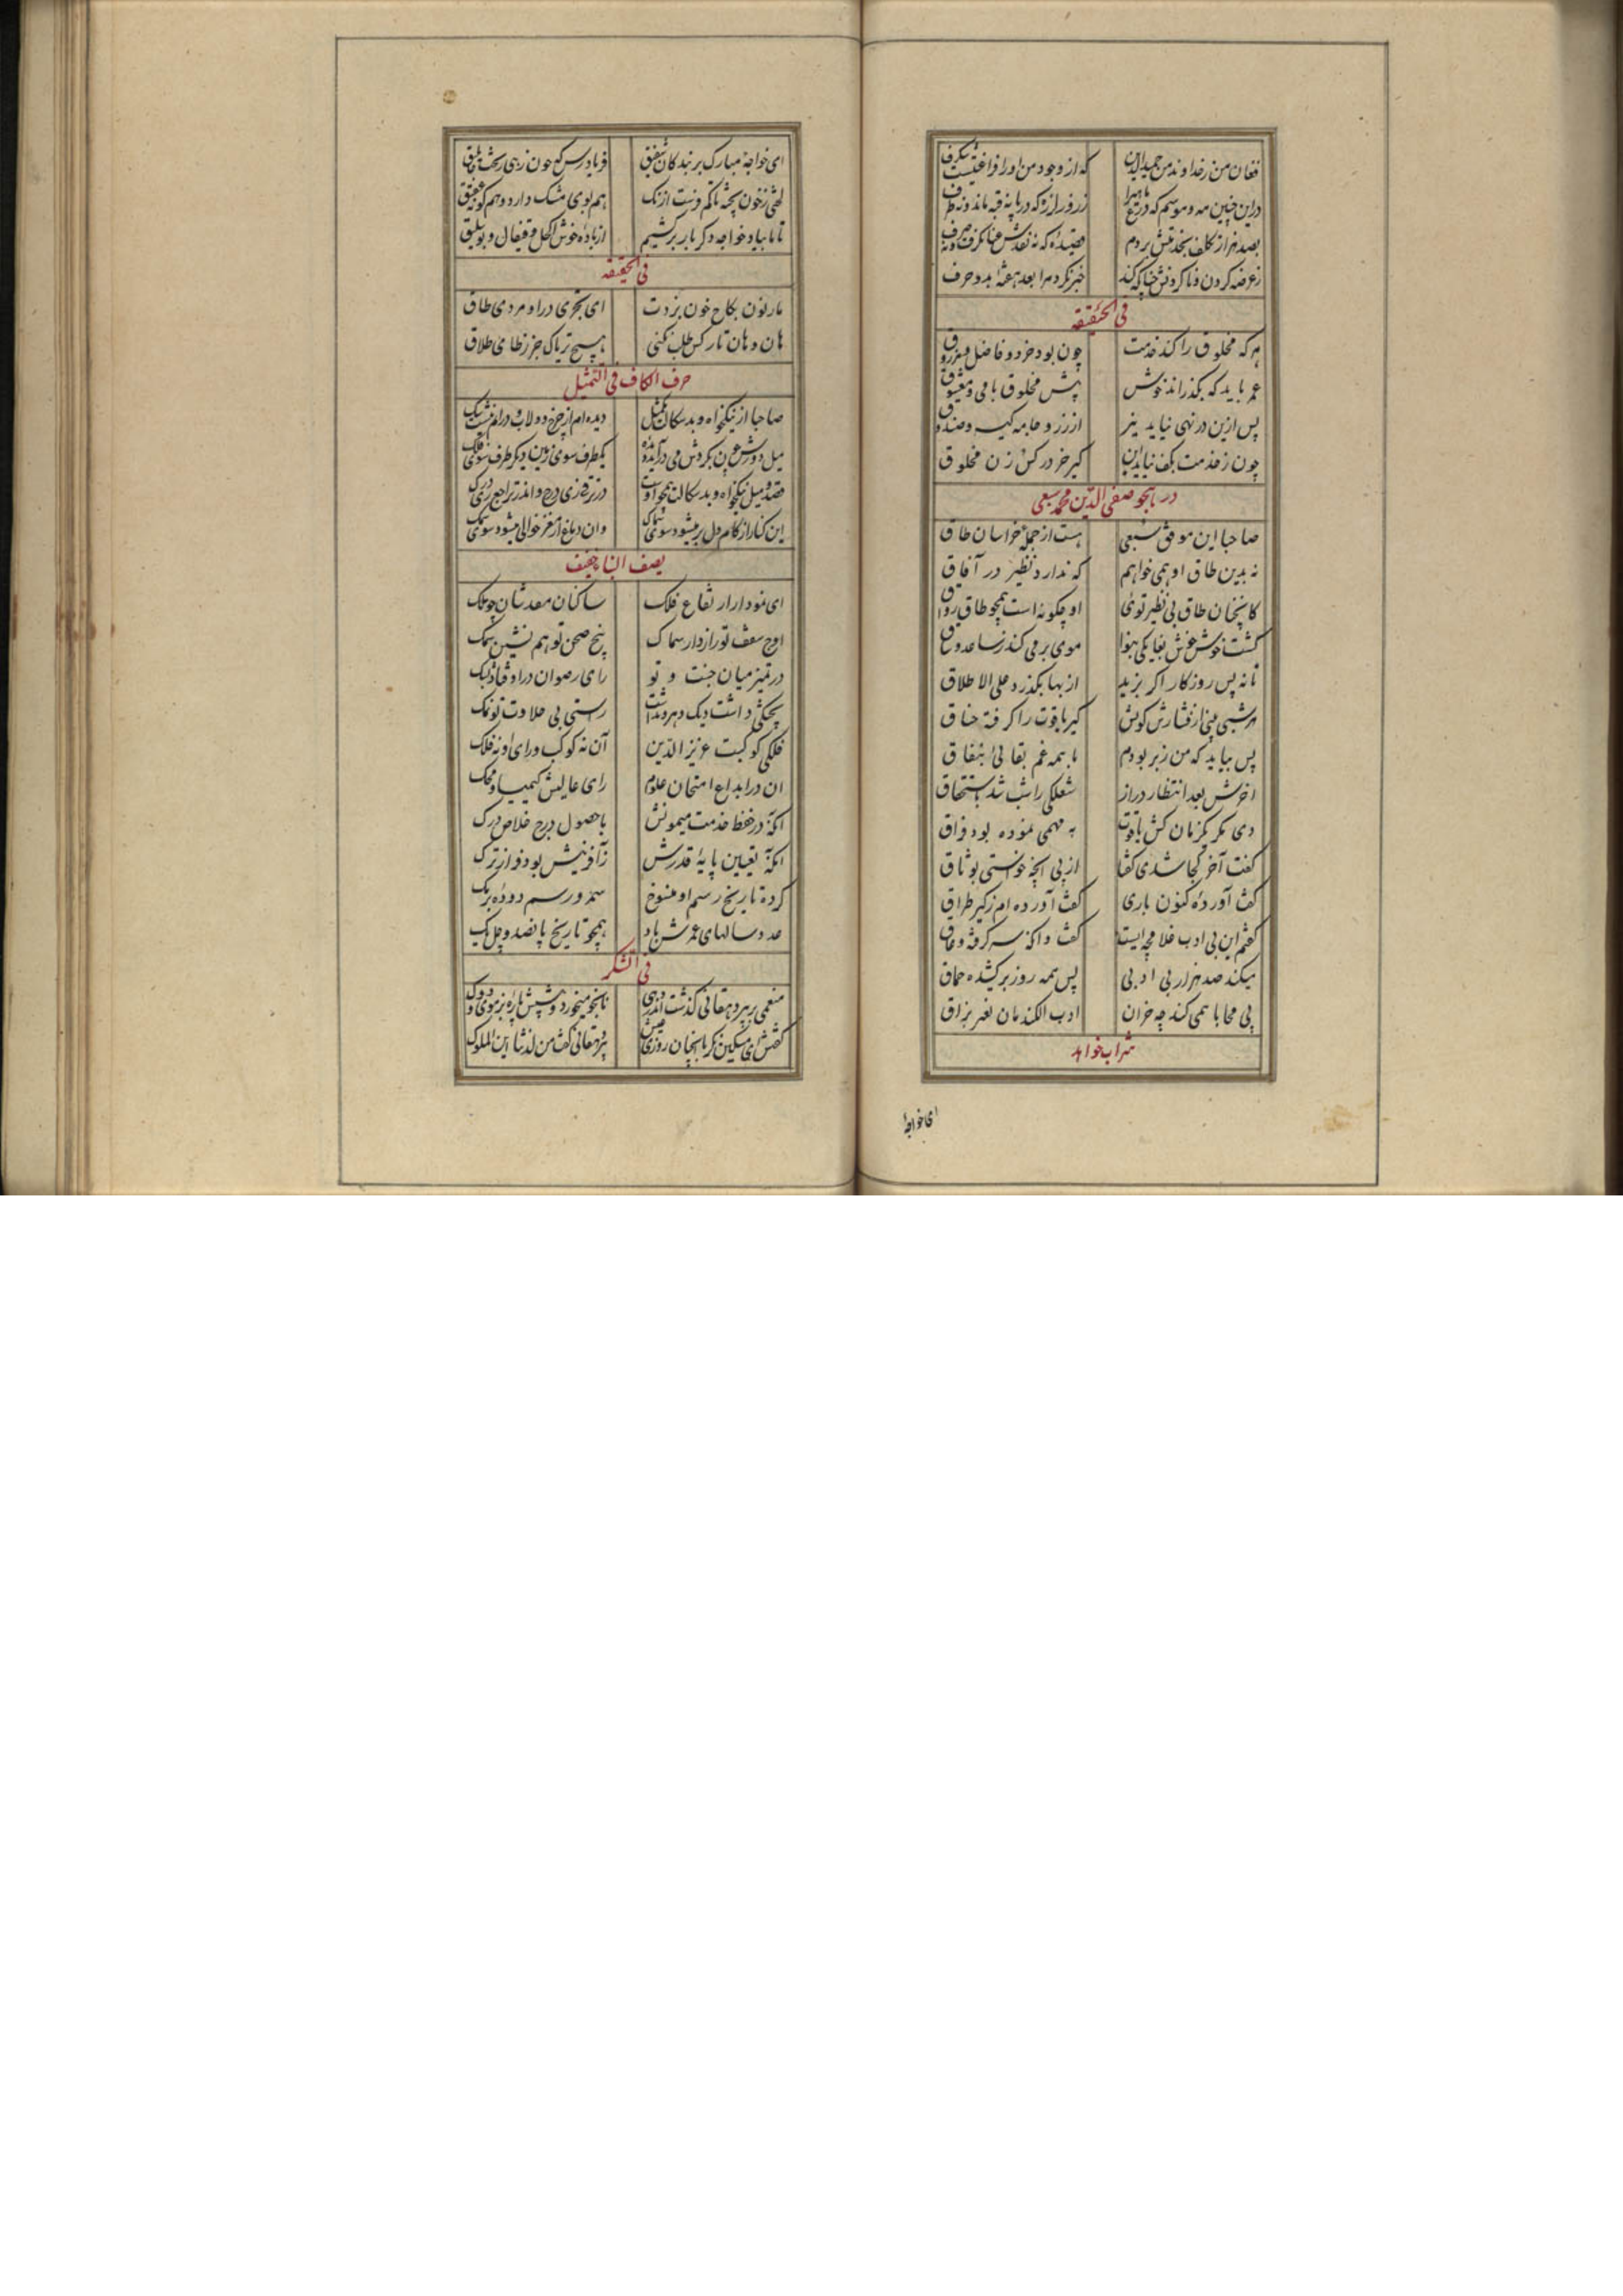 فغان من ز خداوند من حمیدالدین که از وجود من او را فراغتیست شگرف
در این چنین مه و موسم که
بصد هزار تکلف بخدمتش بردم قصیده که
ز عرضه کردن و ناکردنش خبر نکرد مرا بعد هفته بدو حرف
فی الحقیقه
هر که مخلوق را کند خدمت چون بود خرد و فاضل و مرزوق
عمر باید که بگذراند خوش پیش مخلوق با می و معشوق
پس ازین در نهی نیاید نیز از زر و جامه کیسه و صندوق
چون ز خدمت بکف نیاید این کیر خر در کس زن مخلوق
در هجو صفی الدین محمد سبعی
صاحبا این موفق سبعی هست از جمله خراسان طاق
نه بدین طاق او همی خواهم که ندارد نظیر در آفاق
کانچنان طاق بی نظیر توئی او چگونه است همچو طاق رواق
موی بر می کند ز ساعد و ساق
تا نه پس روزگار اگر بزید از بها بگذرد علی الاطلاق
هر شبی بینی از فشارش کونش کیر یاقوت را گرفته خناق
پس بیاید که من زبر بودم با همه غم بقائی بنفاق
اخرش بعد انتظار دراز شغلکی راست شد باستحقاق
دی مگر یکزمان کش یاقوت به مهمی نموده بود فراق
گفت آخر کجا شدی گفتا از پی آنچه خواستی بوثاق
گفت آورده کنون باری گفت آورده ام ز کیر طراق
گفتم این بی ادب غلامچه ایست
میکند صد هزار بی ادبی پس همه روز برکشیده حماق
بی محابا همی کند چه خران ادب الکندمان نغر بزاق
شراب خواهد
ای خواجه
ای خواجه مبارک بر بندگان شفیق فریادرس که خون رهی ریخت جاثلیق
هم بوی مشک دارد و هم گونه عقیق
تا ما بیاد خواجه دگر بار بر کشیم از باده خوش اکحل و قیفال و بوسلیق
فی الحقیقه
مار نون نکاح خون بزدت ای بحری در او مردی طاق
هان و هان تا ز کس طلب نکنی هیچ تریاک جز زظا می طلاق
حرف الکاف فی التمثیل
صاحبا از نیکخواه و بدسگالت بمثل دیده ام از چرخ دولاب و در آنم نیست شک
میل دورش چون بگردش می درآید یکطرف سوی زمین دیگر طرف سوی فلک
قصد و میل نیکخواه و بدسگالت همچو اوست در ترقی زی درج و اندر تراجع زی درک
این کنار از کام دل پر میشود سوی سماک وان دماغ از مغز خوالی میشود سوی سمک
یصف البناء خفیف
ای نمودار ارتفاع فلک ساکنان معدشان چو ملک
اوج سقف تو رازدار سماک بیخ صحن تو هم نشین سمک
در تمیز میان جنت و تو رای رضوان در اوفتاد بشک
پختگی داشت دیگ دهر و نداشت راستی بی حلاوت تو نمک
فلکی کوکبت عزیز الدین آن نه کوکب ورای او نه فلک
ان در ابداع امتحان علوم رای عالیش کیمیا و محک
آنکه در حفظ خدمت میمونش با حصول درج خلاص درک
آنکه تعیین پایه قدرش ز آفرینش بود فراز ترک
کرده تاریخ رسم او منسوخ سمر و رسم دوده برمک
عدد سالهای عمرش باد همچو تاریخ پانصد و چل یک
فی الشکر
منعمی بر پیر دهقانی گذشت اندر دهی نانجو میخورد و پیشش پاره بز موی و دوک
گفتش ای مسکین مگر با اینچنان روزی پیر دهقانی گفت من لذتنا این الملوک